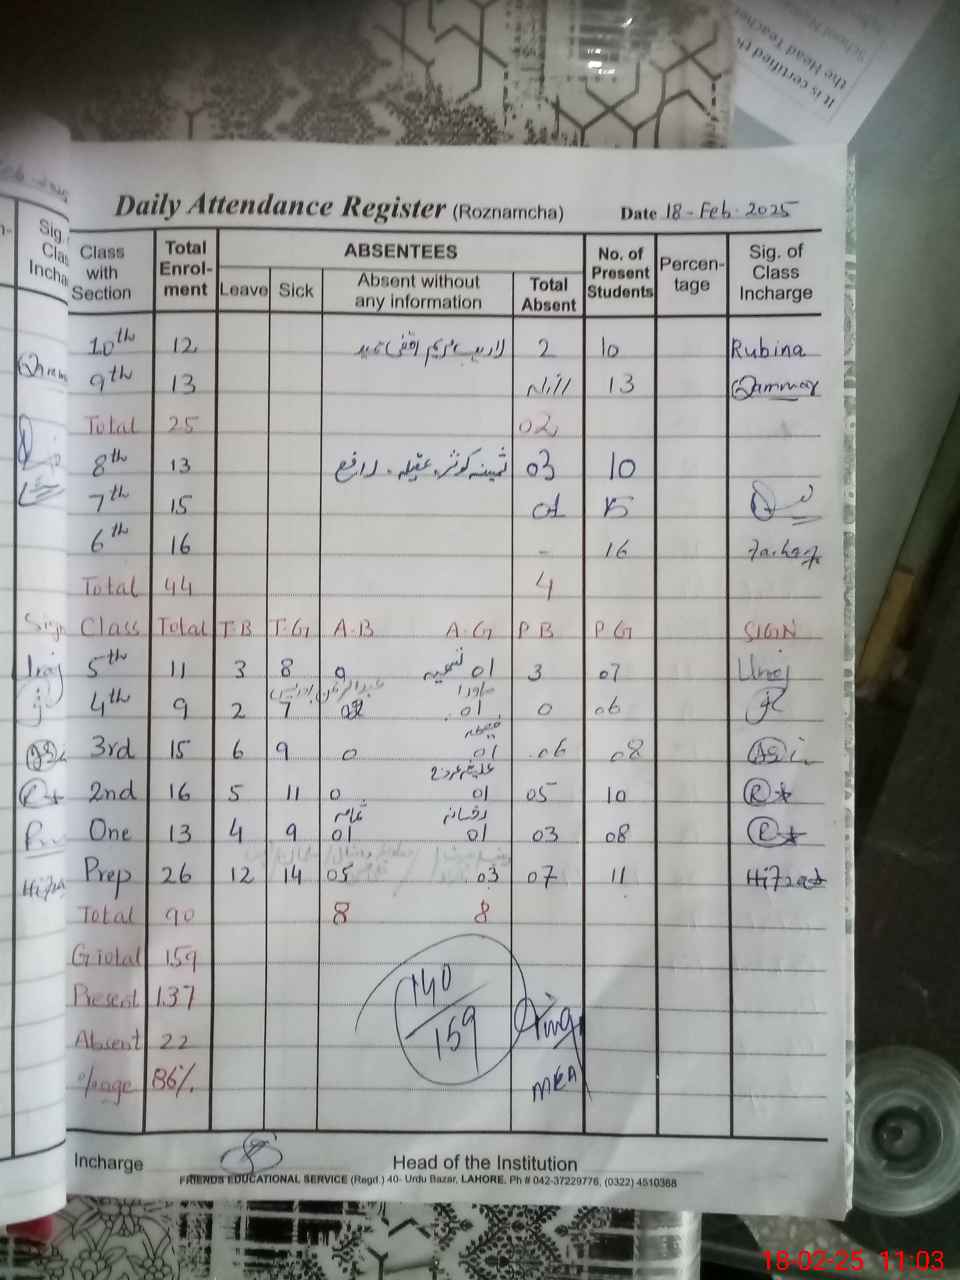 It is certified th
the Head Teacher
School Name
Daily Attendance Register (Roznamcha) Date 18-Feb-2025
Class with Section Total Enrol-ment ABSENTEES No. of Present Students Percen-tage Sig. of Class Incharge
Leave Sick Absent without any information Total Absent
10th 12 2 10 Rubina
9th 13 13 Qammar
Total 25 02
8th 13 ثمینہ کوثر، عقیلہ، رافع 03 10
7th 15 01 15
6th 16 - 16
Total 44 4
Class Total T.B T.G A.B A.G P B P G SIGN
5th 11 3 8 0 01 3 07
4th 9 2 7 01 0 06
3rd 15 6 9 0 01 06 08
2nd 16 5 11 0 01 05 10 R
One 13 4 9 01 01 03 08 R
Prep 26 12 14 05 03 07 11
Total 90 8 8
G total 159
Present 137
Absent 22
%age 86%
140/159
MEA
Incharge Head of the Institution
FRIENDS EDUCATIONAL SERVICE (Regd.) 40- Urdu Bazar, LAHORE. Ph # 042-37229776, (0322) 4510368
18-02-25 11:03